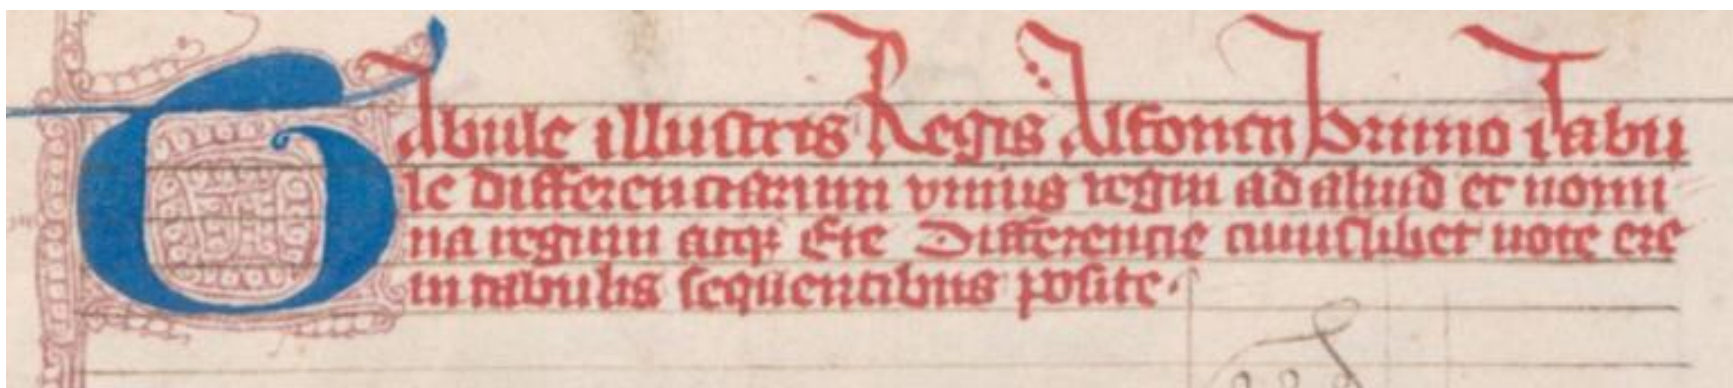 Tabule illustris Regis Alfoncii Primo Tabu
le differenciarum vnius regni ad aliud et nomi
na regum atqꝫ Ere Differencie cuiuslibet note ere
in tabulis sequentibus posite.